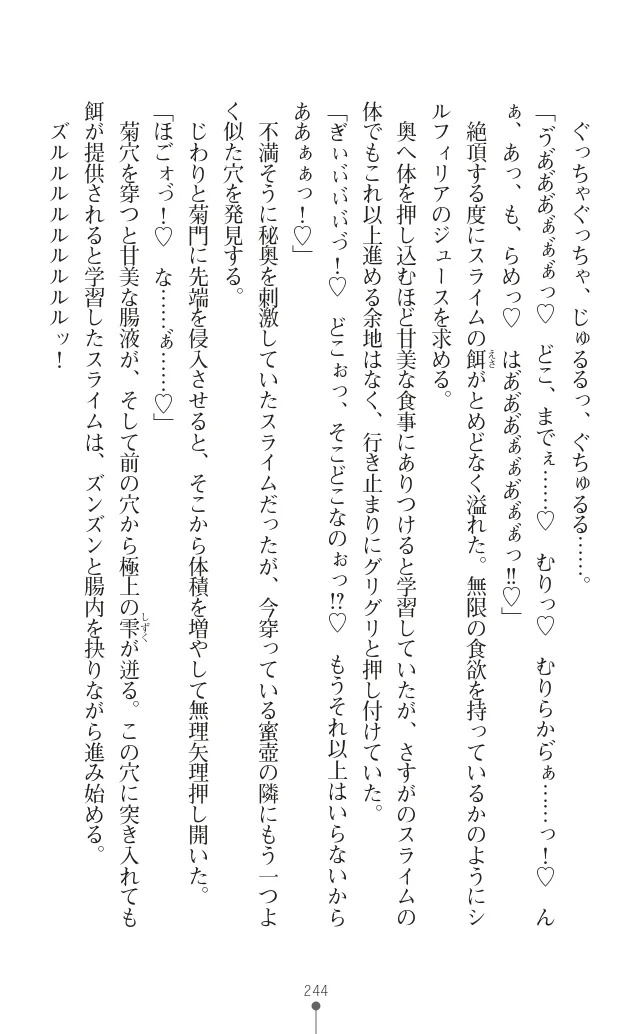 ぐっちゃぐっちゃ、じゅるるっ、ぐちゅるる……。
「ゔあ゙あ゙あ゙ぁ゙ぁ゙ぁ゙っ♡　どこ、までぇ……♡　むりっ♡　むりらからぢぁ……っ！♡　ん
ぁ、あっ、も、らめっ♡　はあ゙あ゙あ゙ぁ゙ぁ゙あ゙ぁ゙ぁ゙っ!!♡」
絶頂する度にスライムの餌がとめどなく溢れた。無限の食欲を持っているかのようにシ
ルフィリアのジュースを求める。
奥へ体を押し込むほど甘美な食事にありつけると学習していたが、さすがのスライムの
体でもこれ以上進める余地はなく、行き止まりにグリグリと押し付けていた。
「ぎぃい゙い゙い゙づ！♡　どこぉっ、そこどこなのぉっ!?♡　もうそれ以上はいらないから
ああぁぁっ！♡」
不満そうに秘奥を刺激していたスライムだったが、今穿っている蜜壺の隣にもう一つよ
く似た穴を発見する。
じわりと菊門に先端を侵入させると、そこから体積を増やして無理矢理押し開いた。
「ほごォづ！♡　な……ぁ゙……♡」
菊穴を穿つと甘美な腸液が、そして前の穴から極上の雫が迸る。この穴に突き入れても
餌が提供されると学習したスライムは、ズンズンと腸内を抉りながら進み始める。
ズルルルルルルルルッ！
えさ
しずく
244